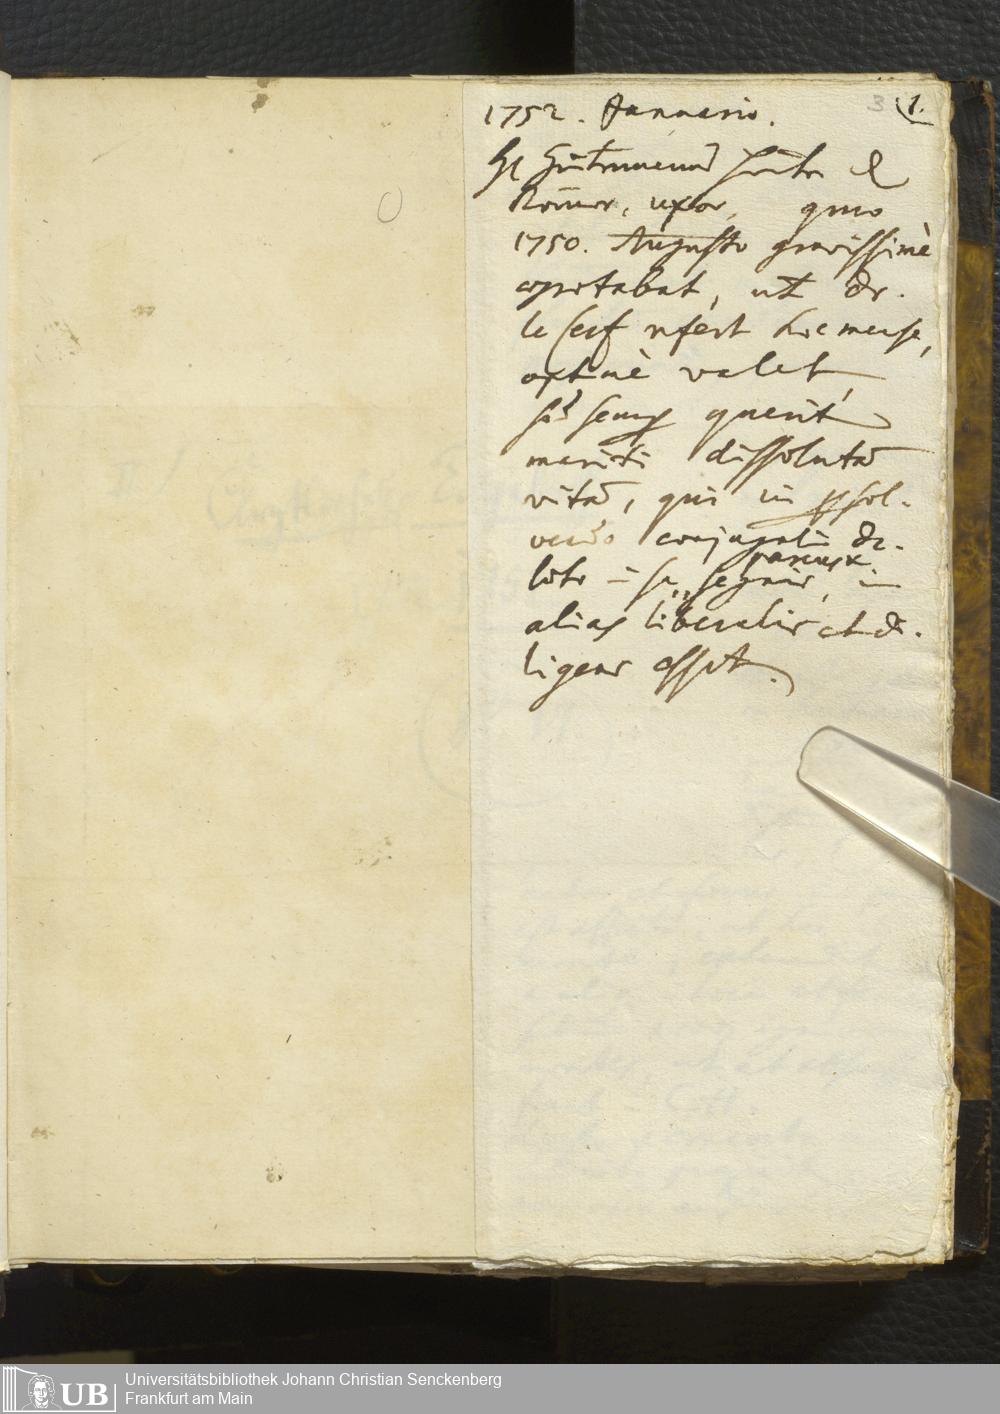 3 1.
1752. Januario.
Römer, uxor, quae
1750. Augusto gravissimè
aegrotabat, ut Dr.
le Cerf refert hoc mense,
optimè valet,
sed semp querit
mariti dissolutā
vitā, qui in psol-
vendo conjugali de-
bito in se segnis, parcus,
alias liberalis et di-
ligens esset.
UB
Universitätsbibliothek Johann Christian Senckenberg
Frankfurt am Main